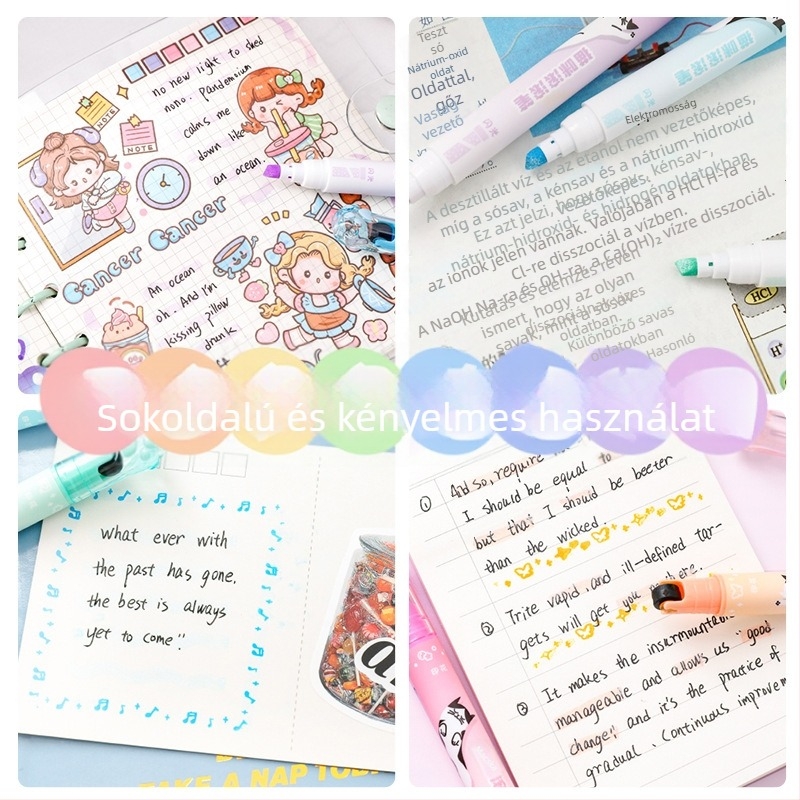 no new light to shed
nono. pandemonium
calms me
down like
an ocean.
NOTE
NOTE
Cancer Cancer
An ocean
oh. And I'm
kissing pillow
drunk
Teszt
só
Nátrium-oxid
oldat
Oldattal,
gőz
Vastag
vezető
Elektromosság
A desztillált víz és az etanol nem vezetőképes,
míg a sósav, a kénsav és a nátrium-hidroxid
Ez azt jelzi, hogy sósav, kénsav-,
nátrium-hidroxid- és hidrogénoldatokban
az ionok jelen vannak. Valójában a HCl H-ra és
Cl-re disszociál a vízben.
A NaOH Na-ra és OH-ra, a Ca(OH)₂ vízre disszociál.
Kutatás és elemzés révén
ismert, hogy az olyan
savak, mint a sósav
oldatban.
Különböző savas
oldatokban
Hasonló
HCl
H⁺
Sokoldalú és kényelmes használat
what ever with
the past has gone.
the best is always
yet to come"!
① And so, require
I should be equal to
but that I should be beeter
than the wicked.
② Trite vapid, and ill-defined tar-
gets will get you nowhere.
③ It makes the insurmountable
manageable and allows us "good
change" and it's the practice of
gradual. Continuous improvem